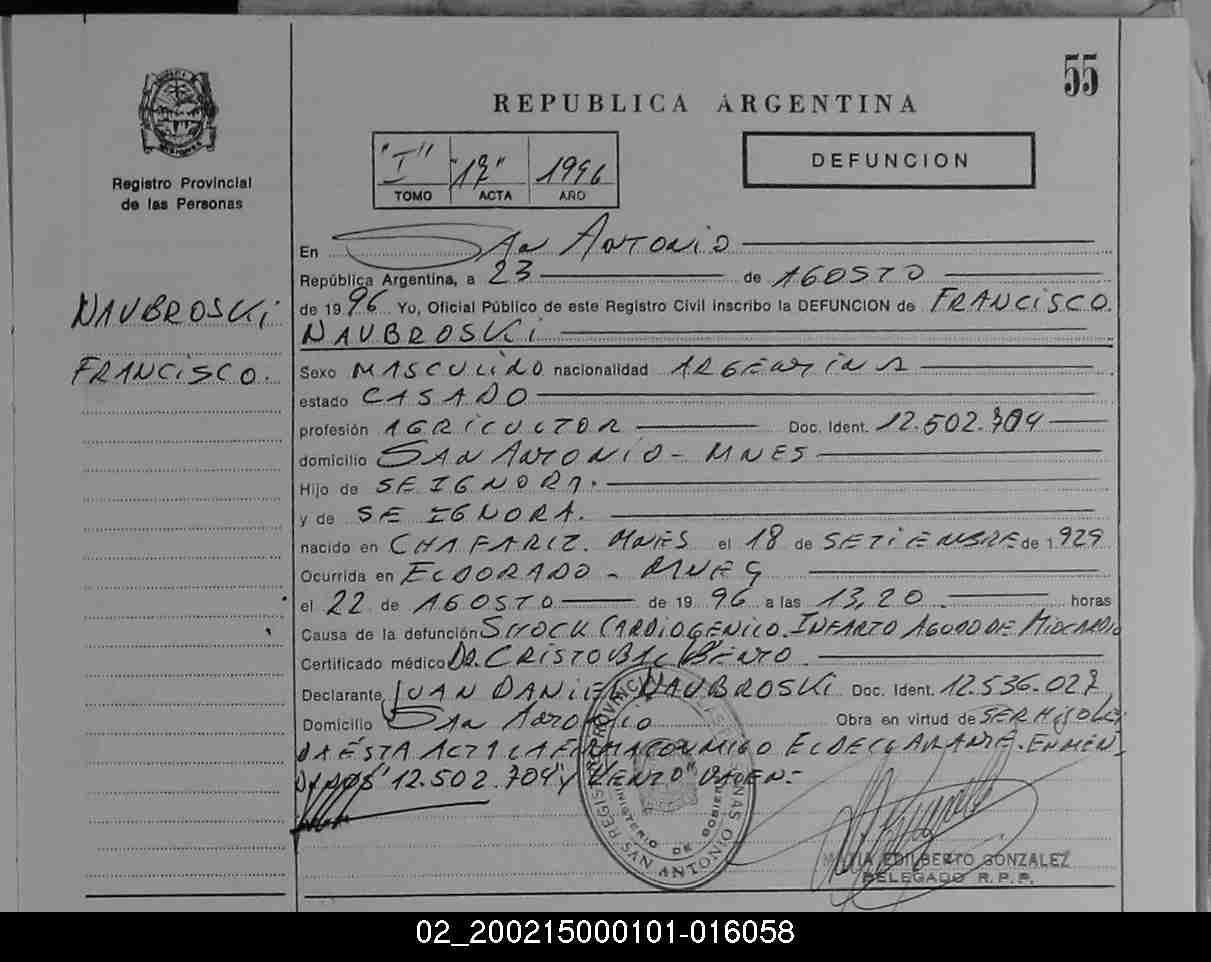 55
REPUBLICA ARGENTINA
"I" "17" 1996
TOMO ACTA AÑO
DEFUNCION
Registro Provincial
de las Personas
NAUBROSKI
FRANCISCO.
En San Antonio
República Argentina, a 23 de AGOSTO
de 1996 Yo, Oficial Público de este Registro Civil inscribo la DEFUNCION de FRANCISCO
NAUBROSKI
Sexo MASCULINO nacionalidad ARGENTINA
estado CASADO
profesión AGRICULTOR Doc. Ident. 12.502.704
domicilio SAN ANTONIO - MNES
Hijo de SE IGNORA.
y de SE IGNORA.
nacido en CHAFARIZ. MNES el 18 de SETIEMBRE de 1.929
Ocurrida en ELDORADO - MNES
el 22 de AGOSTO de 1996 a las 13,20 horas
Causa de la defunción SHOCK CARDIOGENICO. INFARTO AGUDO DE MIOCARDIO
Certificado médico DR. CRISTOBAL BENTO
Declarante JUAN DANIEL NAUBROSKI Doc. Ident. 12.536.027
Domicilio San Antonio Obra en virtud de SER HIJO LEI
DA ÉSTA ACTA LA FIRMA CONMIGO EL DECLARANTE. ENMEN
DADOS "12.502.704 y BENTO" VALEN=
REGISTRO PROVINCIAL DE LAS PERSONAS
MINISTERIO DE GOBIERNO
SAN ANTONIO
EDILBERTO GONZALEZ
DELEGADO R.P.P.
02_200215000101-016058